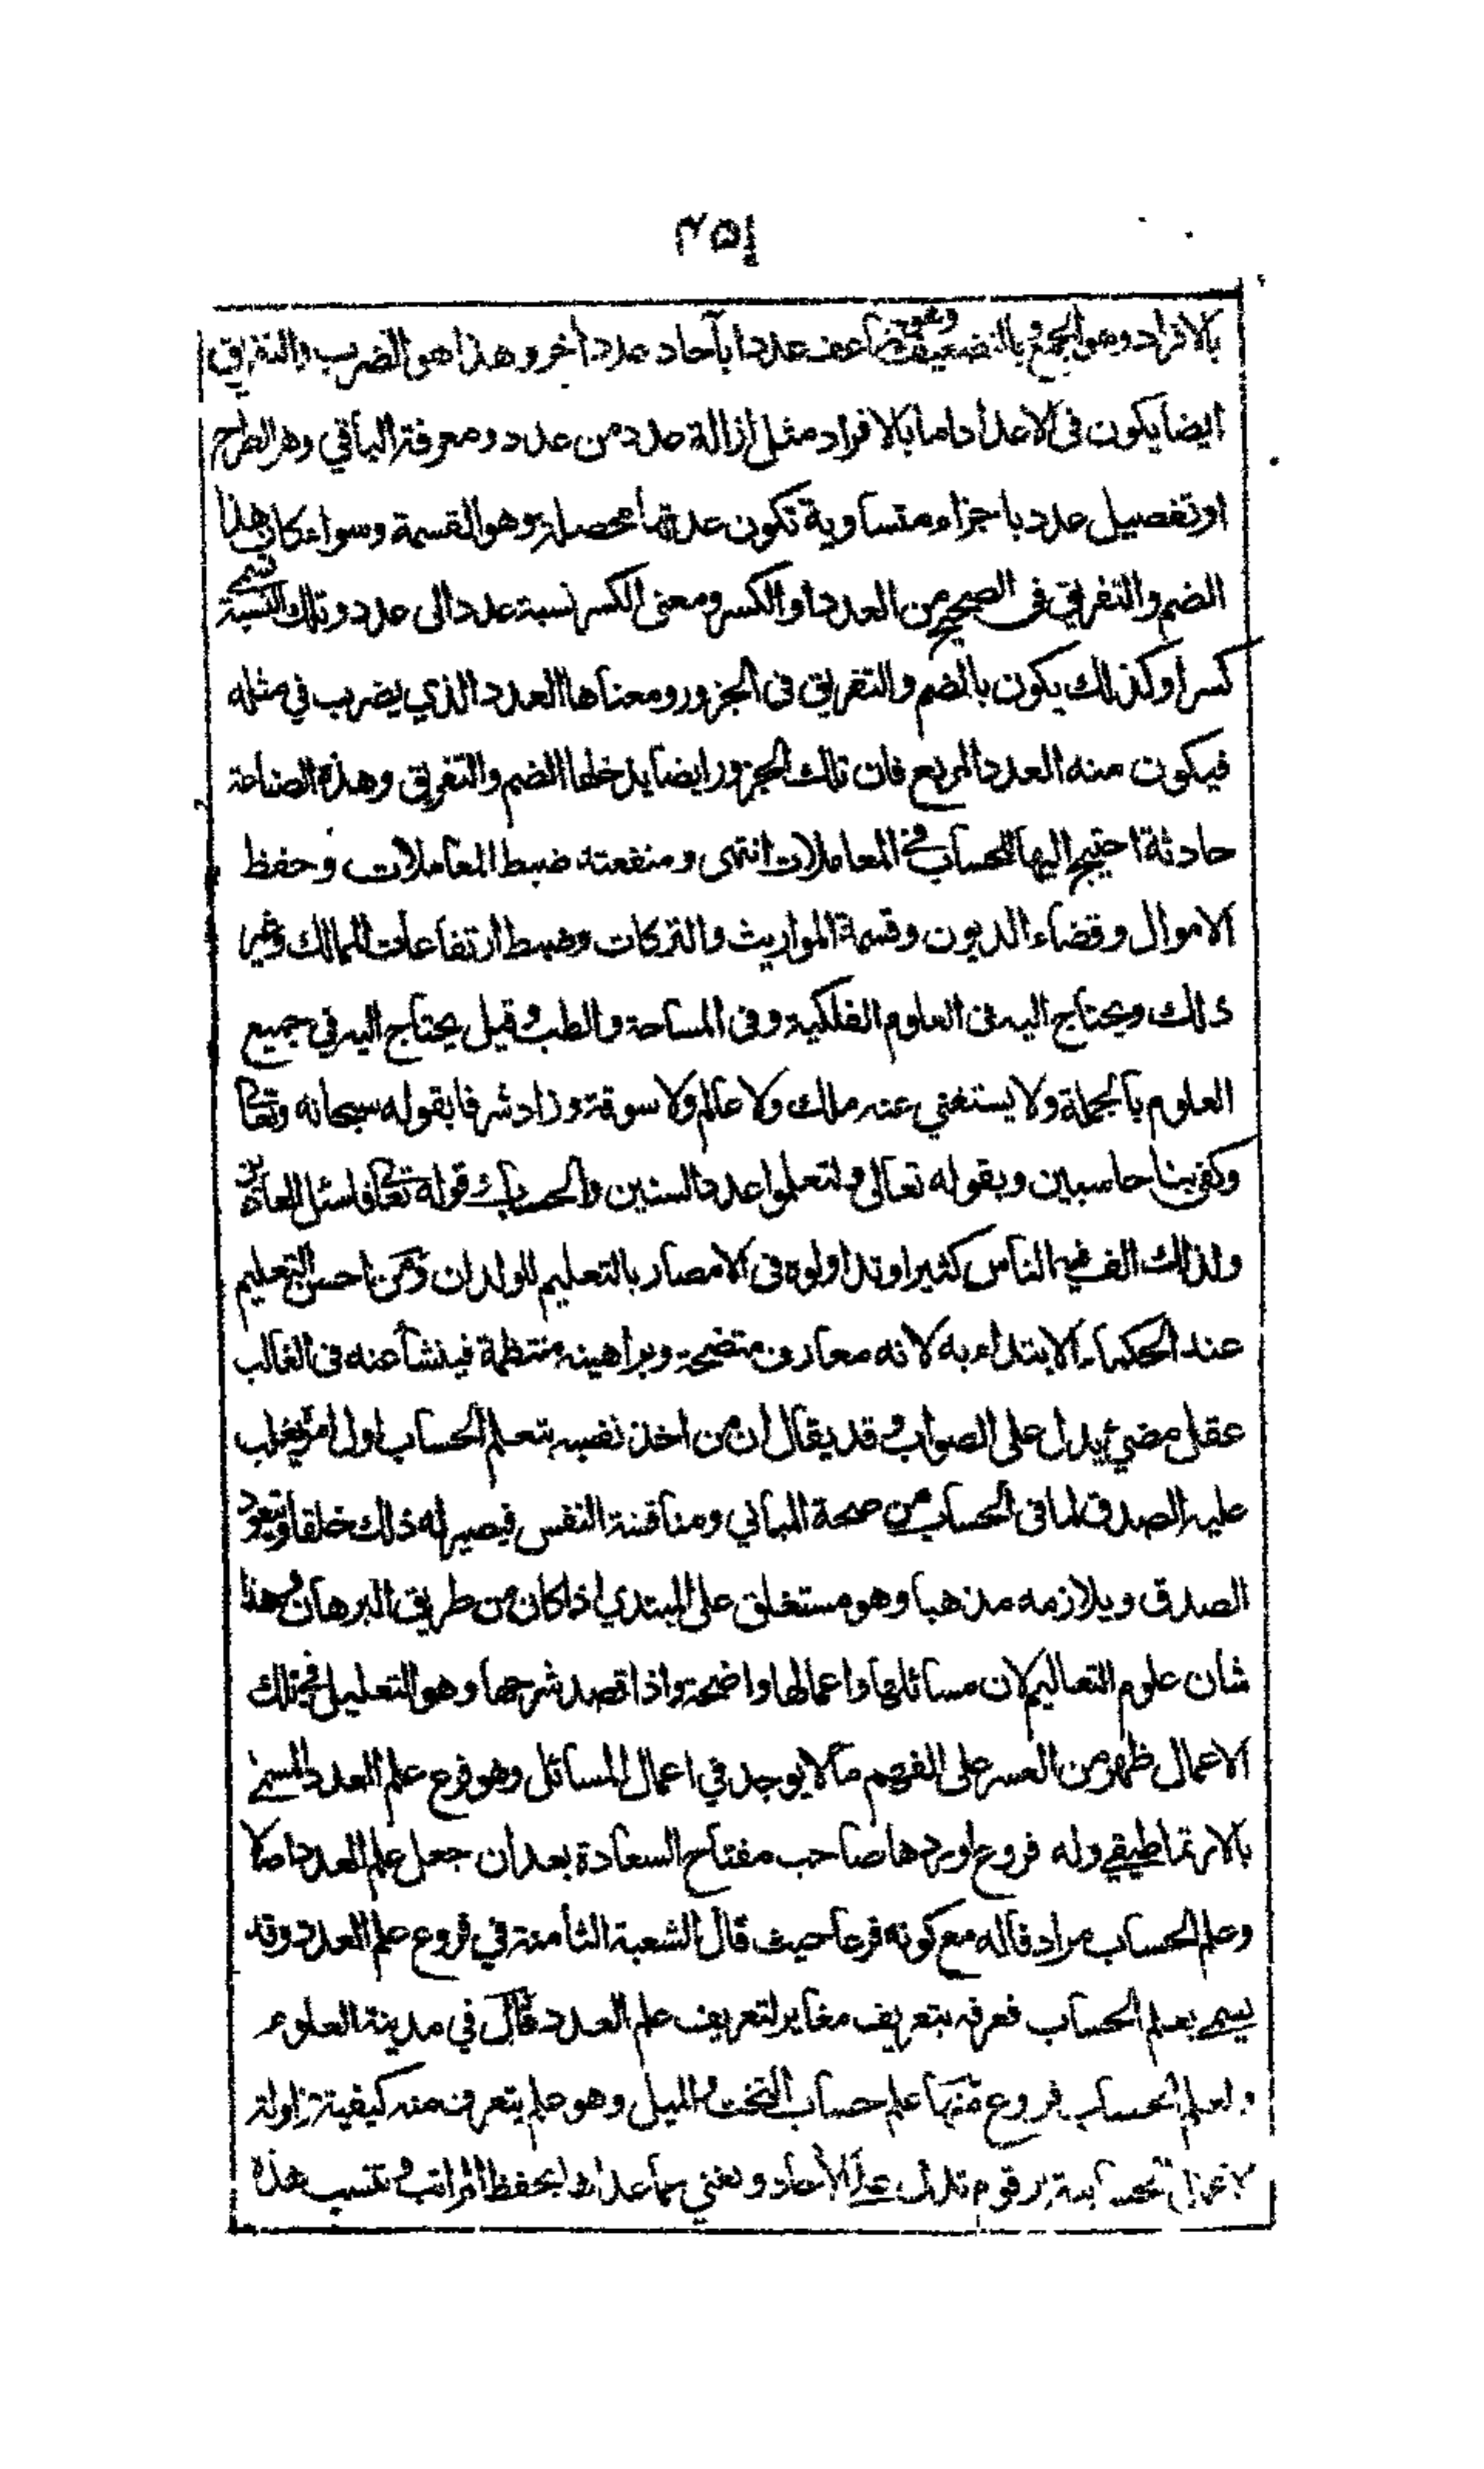 ٤٥١
بالافراد وهو الجمع و بالتضعيف وهو تضاعف عددا بآحاد عدد أخر وهذا هو الضرب والتفريق
ايضا يكون فى الاعداد اما بالافراد مثل ازالة عدد من عدد ومعرفة الباقي وهو الطرح
او تفصيل عدد باجزاء متساوية تكون عدتها محصلة وهو القسمة وسواء كان هذا
الضم والتفريق فى الصحيح من العدد أو الكسر ومعنى الكسر نسبة عدد الى عدد وتلك النسبة تسمى
كسرا وكذلك يكون بالضم والتفريق فى الجزور ومعناها العدد الذي يضرب في مثله
فيكون منه العدد المربع فان تلك الجزور ايضا يدخلها الضم والتفريق وهذه الصناعة
حادثة احتيج اليها للحساب فى المعاملات انتهى ومنفعته ضبط المعاملات وحفظ
الاموال وقضاء الديون وقسمة المواريث والتركات وضبط ارتفاعات الممالك وغير
ذلك ويحتاج اليه فى العلوم الفلكية وفى المساحة والطب وقيل يحتاج اليه في جميع
العلوم بالجملة ولا يستغني عنه ملك ولا عالم ولا سوقة وزاد شرفا بقوله سبحانه وتعالى
وكفى بنا حاسبين وبقوله تعالى ولتعلموا عدد السنين والحساب وقوله تعالى فاسئل العادين
ولذلك الف فيه الناس كثيرا وتداولوه فى الامصار بالتعليم للولدان ومن احسن التعليم
عند الحكماء الابتداء به لانه معارف متضحة وبراهينه منتظمة فينشأ عنه فى الغالب
عقل مضيء يدل على الصواب وقد يقال ان من اخذ نفسه بتعلم الحساب اول امره يغلب
عليه الصدق لما فى الحساب من صحة المباني ومناقشة النفس فيصير له ذلك خلقا ويتعود
الصدق ويلازمه مذهبا وهو مستغلق على المبتدي اذا كان من طريق البرهان وهذا
شان علوم التعاليم لان مسائلها واعمالها واضحة واذا قصد شرحها وهو التعليل فى تلك
الاعمال ظهر من العسر على الفهم ما لا يوجد في اعمال المسائل وهو فرع علم العدد المسمى
بالارتماطيقي وله فروع اوردها صاحب مفتاح السعادة بعد ان جعل علم العدد اصلا
وعلم الحساب مرادفا له مع كونه فرعا حيث قال الشعبة الثامنة في فروع علم العدد وقد
يسمى بعلم الحساب فعرفه بتعريف مغاير لتعريف علم العدد قال في مدينة العلوم
ولعلم الحساب فروع منها علم حساب التخت والميل وهو علم يتعرف منه كيفية مزاولة
الاعمال الحسابية برقوم تدل على الأحاد وتغني عما عداها بحفظ المراتب وتنسب هذه